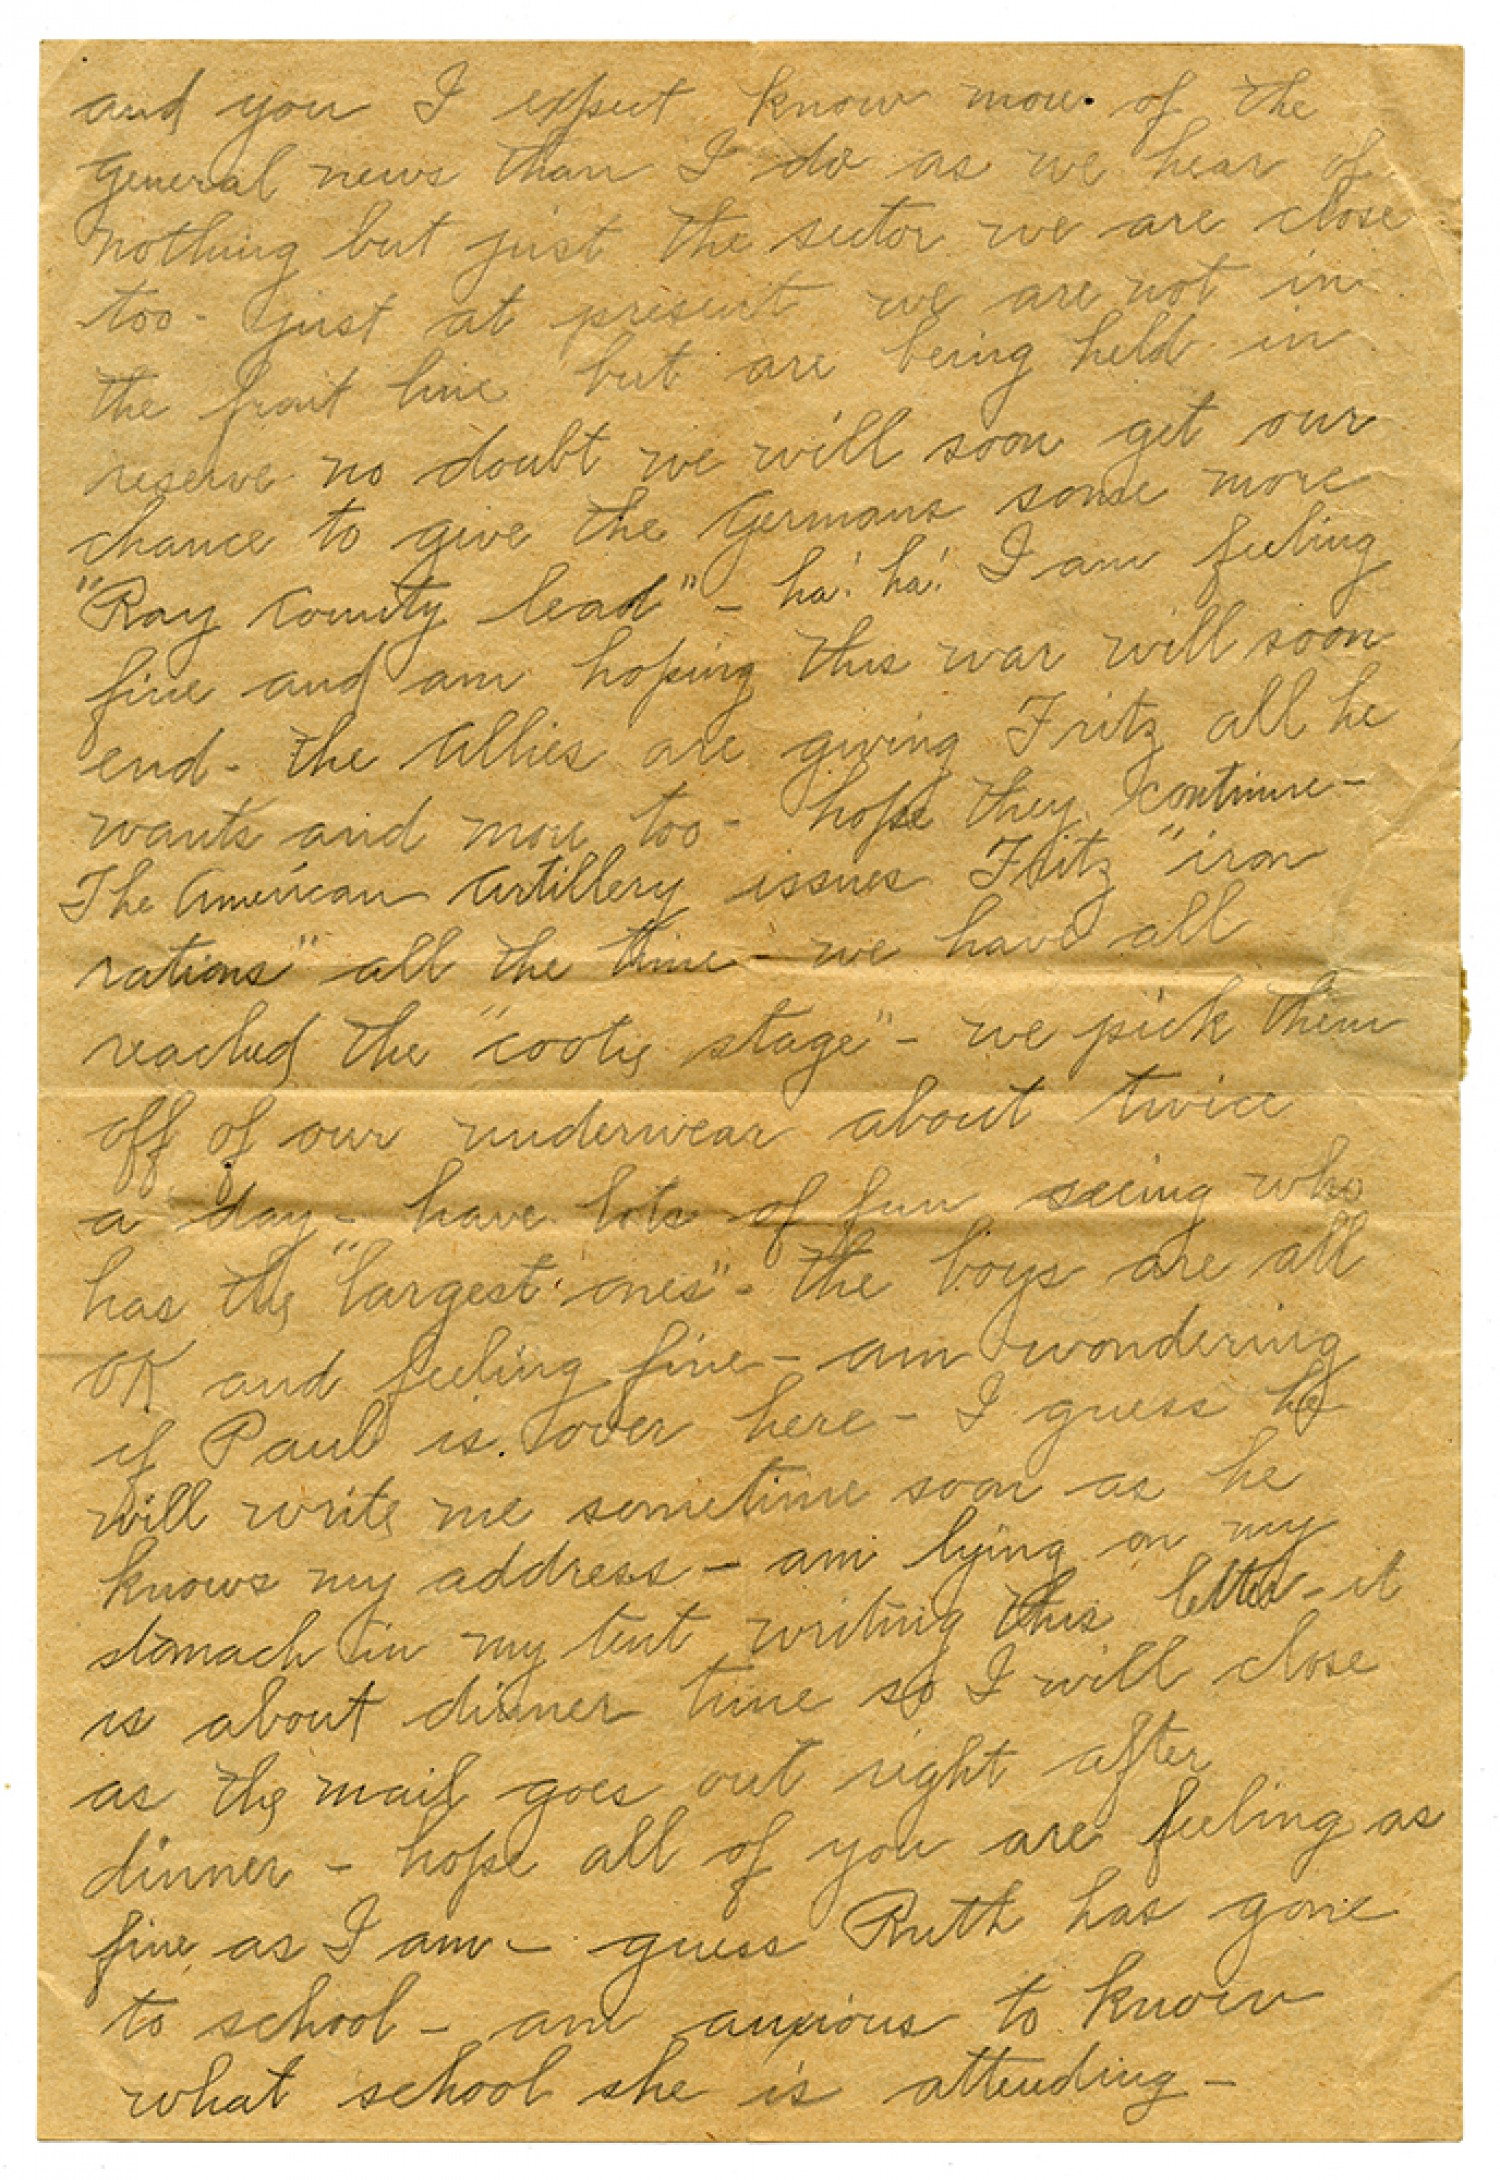 and you I expect know more of the
General news than I do as we hear of
nothing but just the sector we are close
too - just at present we are not in
the front line but are being held in
reserve no doubt we will soon get our
chance to give the Germans some more
"Ray County lead" - ha! ha! I am feeling
fine and am hoping this war will soon
end - the Allies are giving Fritz all he
wants and more too - hope they continue -
The American Artillery issues Fritz "iron
rations" all the time - we have all
reached the "cootie stage" - we pick them
off of our underwear about twice
a day - have lots of fun seeing who
has the "largest ones" - the boys are all
OK and feeling fine - am wondering
if Paul is over here - I guess he
will write me sometime soon as he
knows my address - am lying on my
stomach in my tent writing this letter - it
is about dinner time so I will close
as the mail goes out right after
dinner - hope all of you are feeling as
fine as I am - guess Ruth has gone
to school - am anxious to know
what school she is attending -